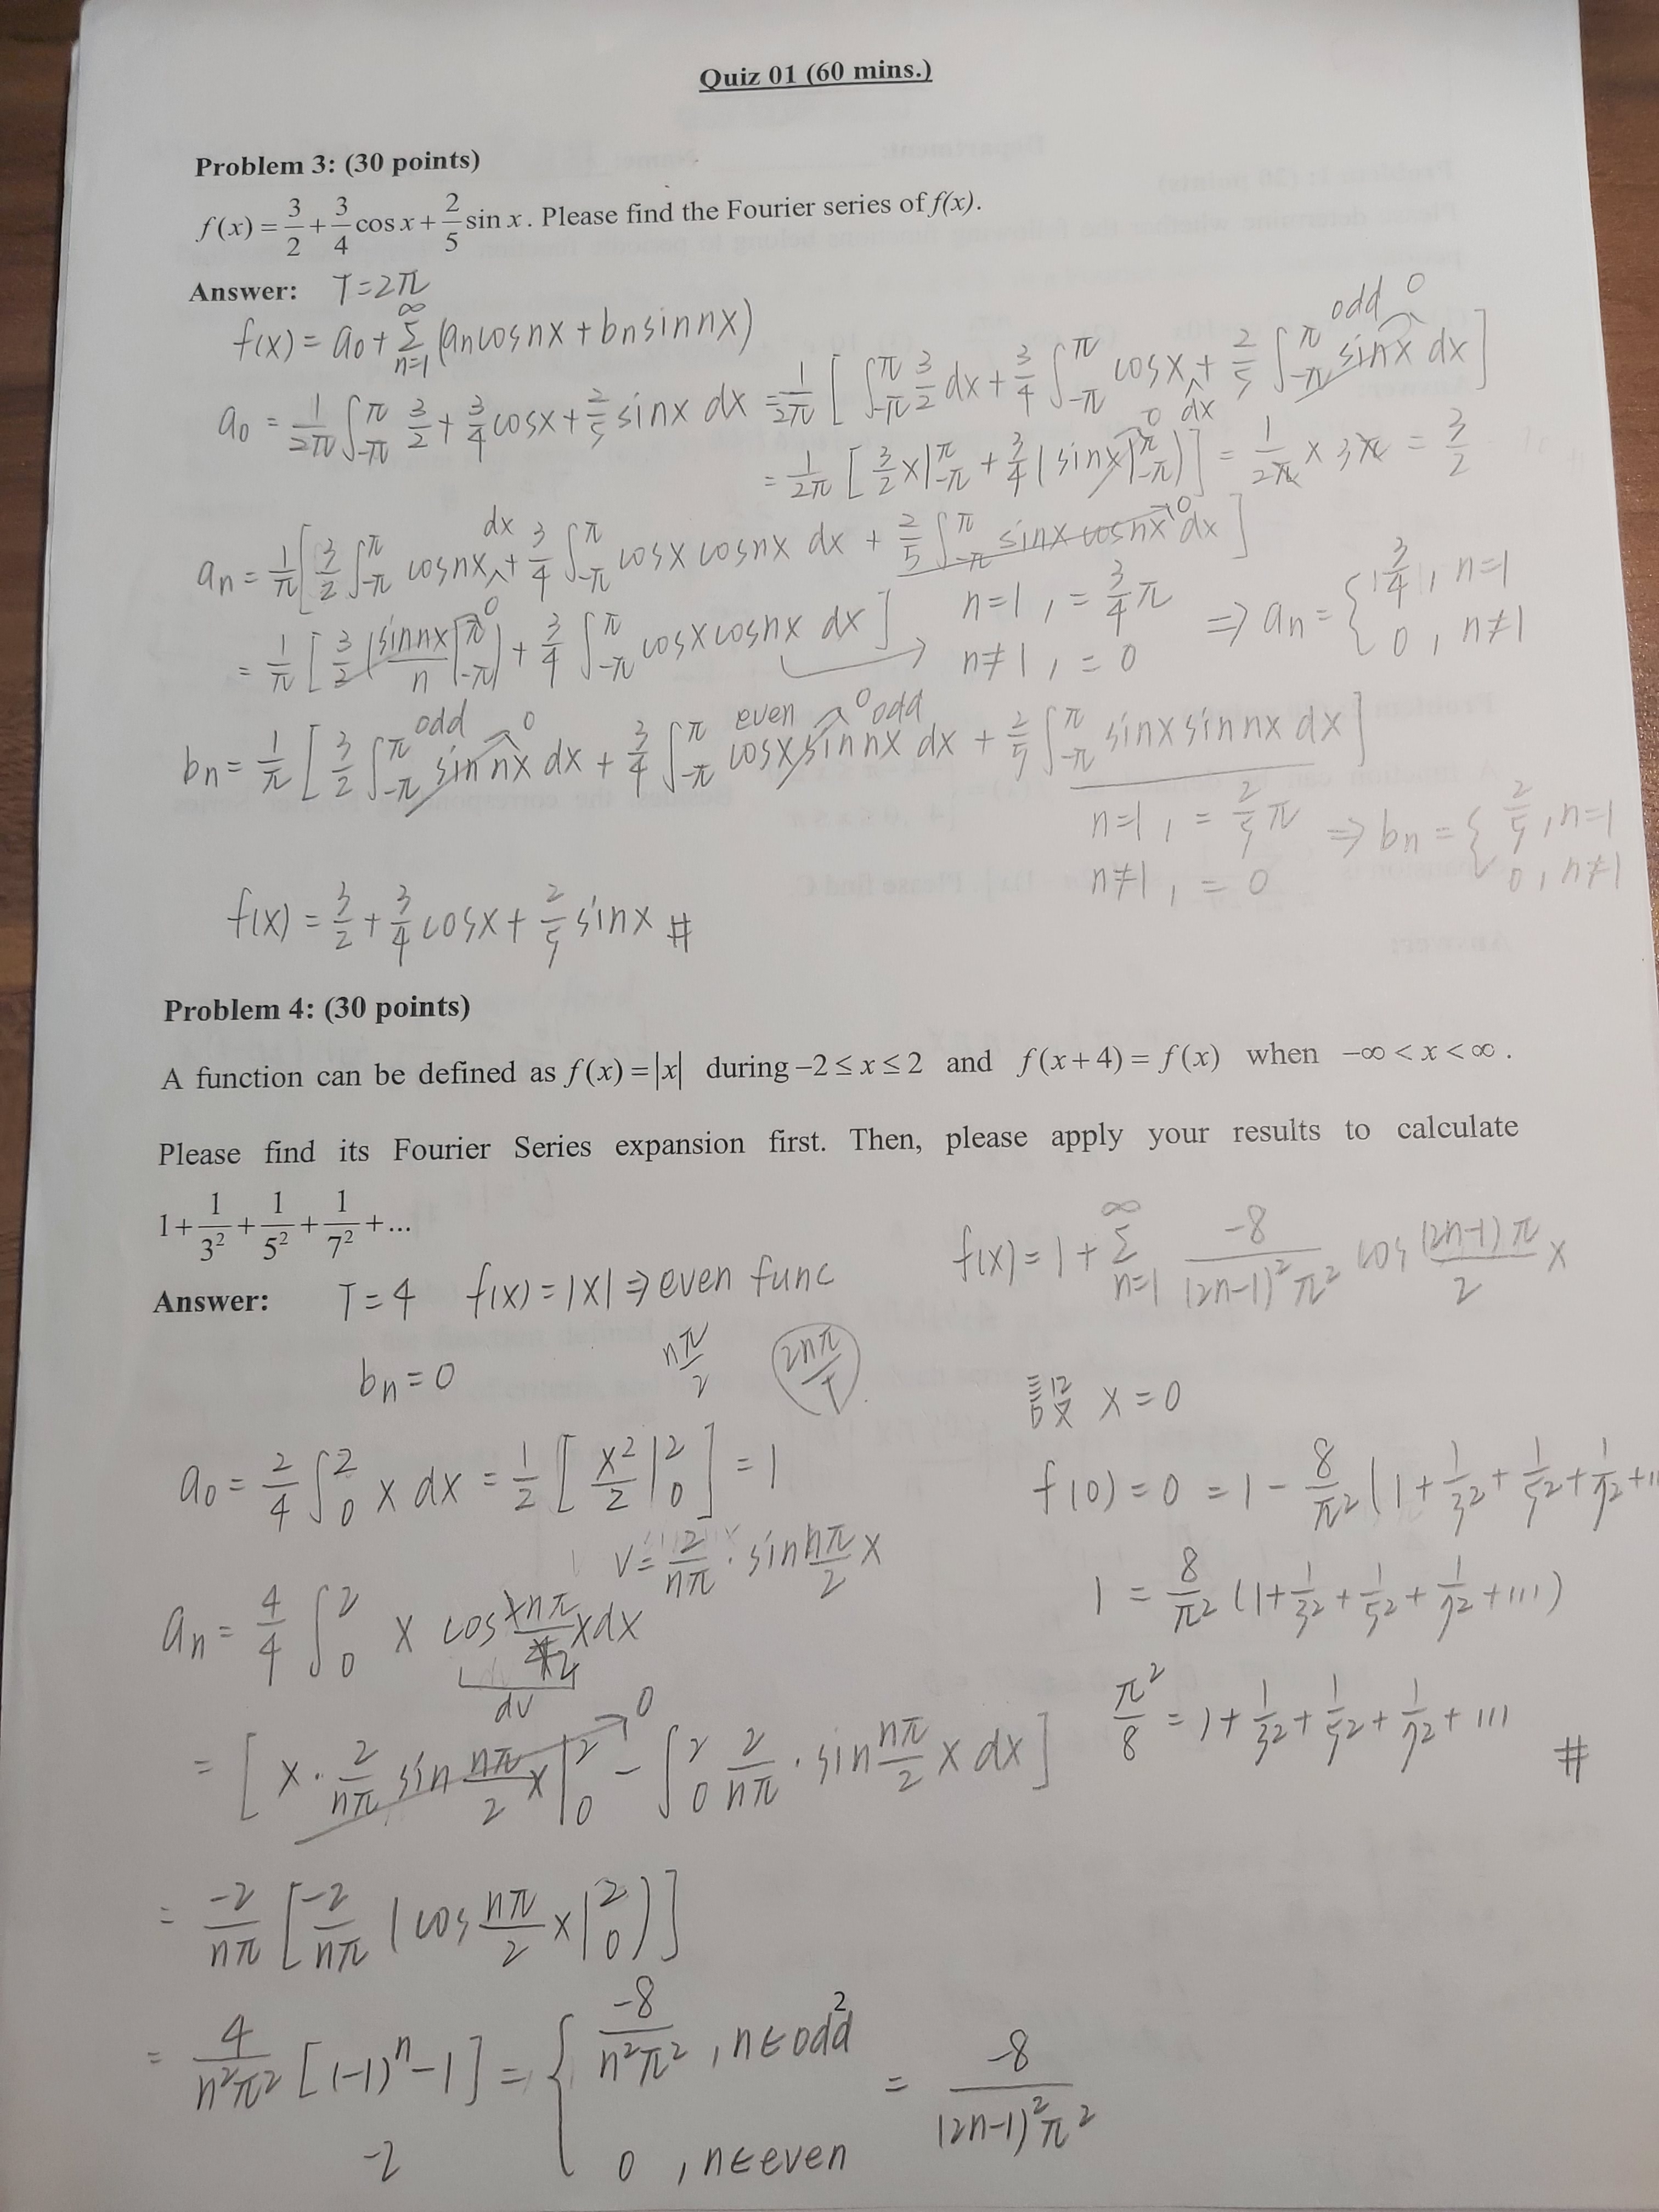 Quiz 01 (60 mins.)
Problem 3: (30 points)
f(x) = 3/2 + 3/4 cos x + 2/5 sin x. Please find the Fourier series of f(x).
Answer: T=2π
f(x) = a₀ + Σ_{n=1}^{∞} (aₙcosnx + bₙsinnx)
a₀ = 1/2π ∫_{-π}^{π} 3/2 + 3/4 cosx + 2/5 sinx dx = 1/2π [ ∫_{-π}^{π} 3/2 dx + 3/4 ∫_{-π}^{π} cosx dx + 2/5 ∫_{-π}^{π} sinx dx ] odd 0
= 1/2π [ 3/2 x|_{-π}^{π} + 3/4 (sinx|_{-π}^{π}) ] = 1/2π × 3π = 3/2
0
aₙ = 1/π [ 3/2 ∫_{-π}^{π} cosnx dx + 3/4 ∫_{-π}^{π} cosx cosnx dx + 2/5 ∫_{-π}^{π} sinx cosnx dx ] 0
= 1/π [ 3/2 (sinnx/n |_{-π}^{π}) + 3/4 ∫_{-π}^{π} cosx cosnx dx ] → n=1, = 3/4 π
0
n≠1, = 0
⇒ aₙ = { 3/4, n=1
0, n≠1
bₙ = 1/π [ 3/2 ∫_{-π}^{π} sin nx dx + 3/4 ∫_{-π}^{π} cosx sin nx dx + 2/5 ∫_{-π}^{π} sinx sin nx dx ]
odd 0 even 0 odd
n=1, = 2/5 π
n≠1, = 0
⇒ bₙ = { 2/5, n=1
0, n≠1
f(x) = 3/2 + 3/4 cosx + 2/5 sinx #
Problem 4: (30 points)
A function can be defined as f(x) = |x| during −2 ≤ x ≤ 2 and f(x+4) = f(x) when −∞ < x < ∞.
Please find its Fourier Series expansion first. Then, please apply your results to calculate
1+1/3²+1/5²+1/7²+...
Answer: T=4 f(x)=|x| ⇒ even func
bₙ=0 nπ/2 2nπ/T
a₀ = 2/4 ∫_0^2 x dx = 1/2 [ x²/2 |_0^2 ] = 1
v = 2/nπ · sin nπ/2 x
aₙ = 4/4 ∫_0^2 x cos 2nπ/4 x dx
2
dv
= [ x · 2/nπ sin nπ/2 x |_0^2 − ∫_0^2 2/nπ · sin nπ/2 x dx ]
0
= -2/nπ [ -2/nπ (cos nπ/2 x |_0^2) ]
= 4/n²π² [(-1)ⁿ−1] = { -8/n²π², n∈odd
0, n∈even
= -8/(2n−1)²π²
-2
2
f(x) = 1 + Σ_{n=1}^{∞} -8/(2n−1)²π² cos (2n−1)π/2 x
設 x=0
f(0) = 0 = 1 − 8/π² (1+1/3²+1/5²+1/7²+...
1 = 8/π² (1+1/3²+1/5²+1/7²+...)
π²/8 = 1+1/3²+1/5²+1/7²+...
#